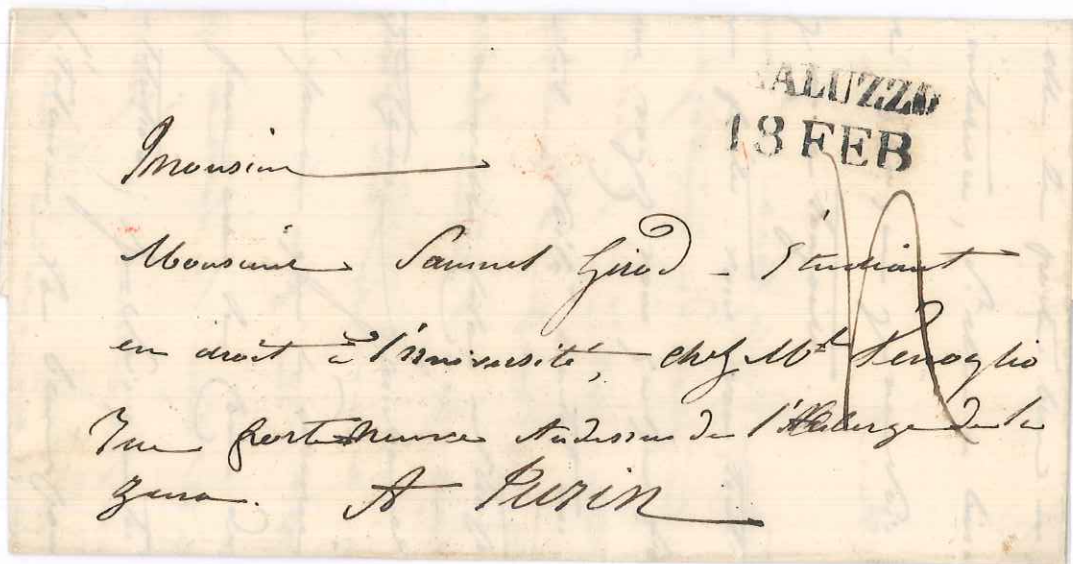 ALUZZO
13 FEB
Monsieur
Monsieur Samuel Girod - Etudiant
en droit à l'Université, chez Mr
Rue Porte Neuve Audessus de l'Auberge de la
A Turin